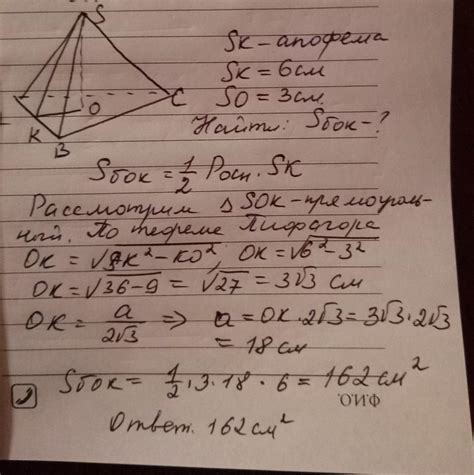 S
O
C
K
B
SK - апофема
SK = 6см
SO = 3см.
Найти: Sбок - ?
Sбок = 1/2 Pосн. · SK
Рассмотрим △ SOK - прямоуголь-
ный. По теореме Пифагора
OK = √SK² - KO², OK = √6² - 3²
OK = √36 - 9 = √27 = 3√3 см
OK = a/2√3 => a = OK · 2√3 = 3√3 · 2√3
= 18 см
Sбок = 1/2 · 3 · 18 · 6 = 162 см²
Ф.И.О.
Ответ. 162 см²